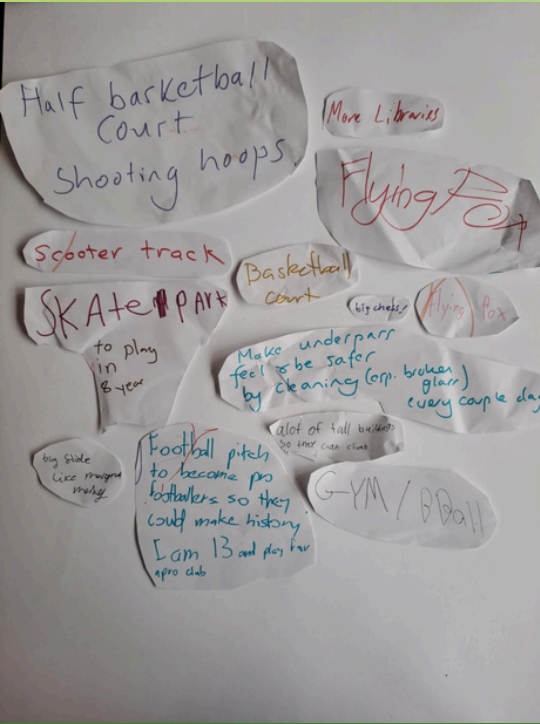 Half barketball
Court
Shooting hoops
More Libraries
Flying
Scooter track
Basketball
court
big chefs
Flying fox
SKAte PARK
to play
in
8 year
Make underpass
feel & be safer
by cleaning (esp. broken
glass)
every couple day
alot of tall buildings
so they can climb
big Slide
like
Football pitch
to become pro
footballers so they
could make history
I am 13 and play for
a pro club
GYM / BBall